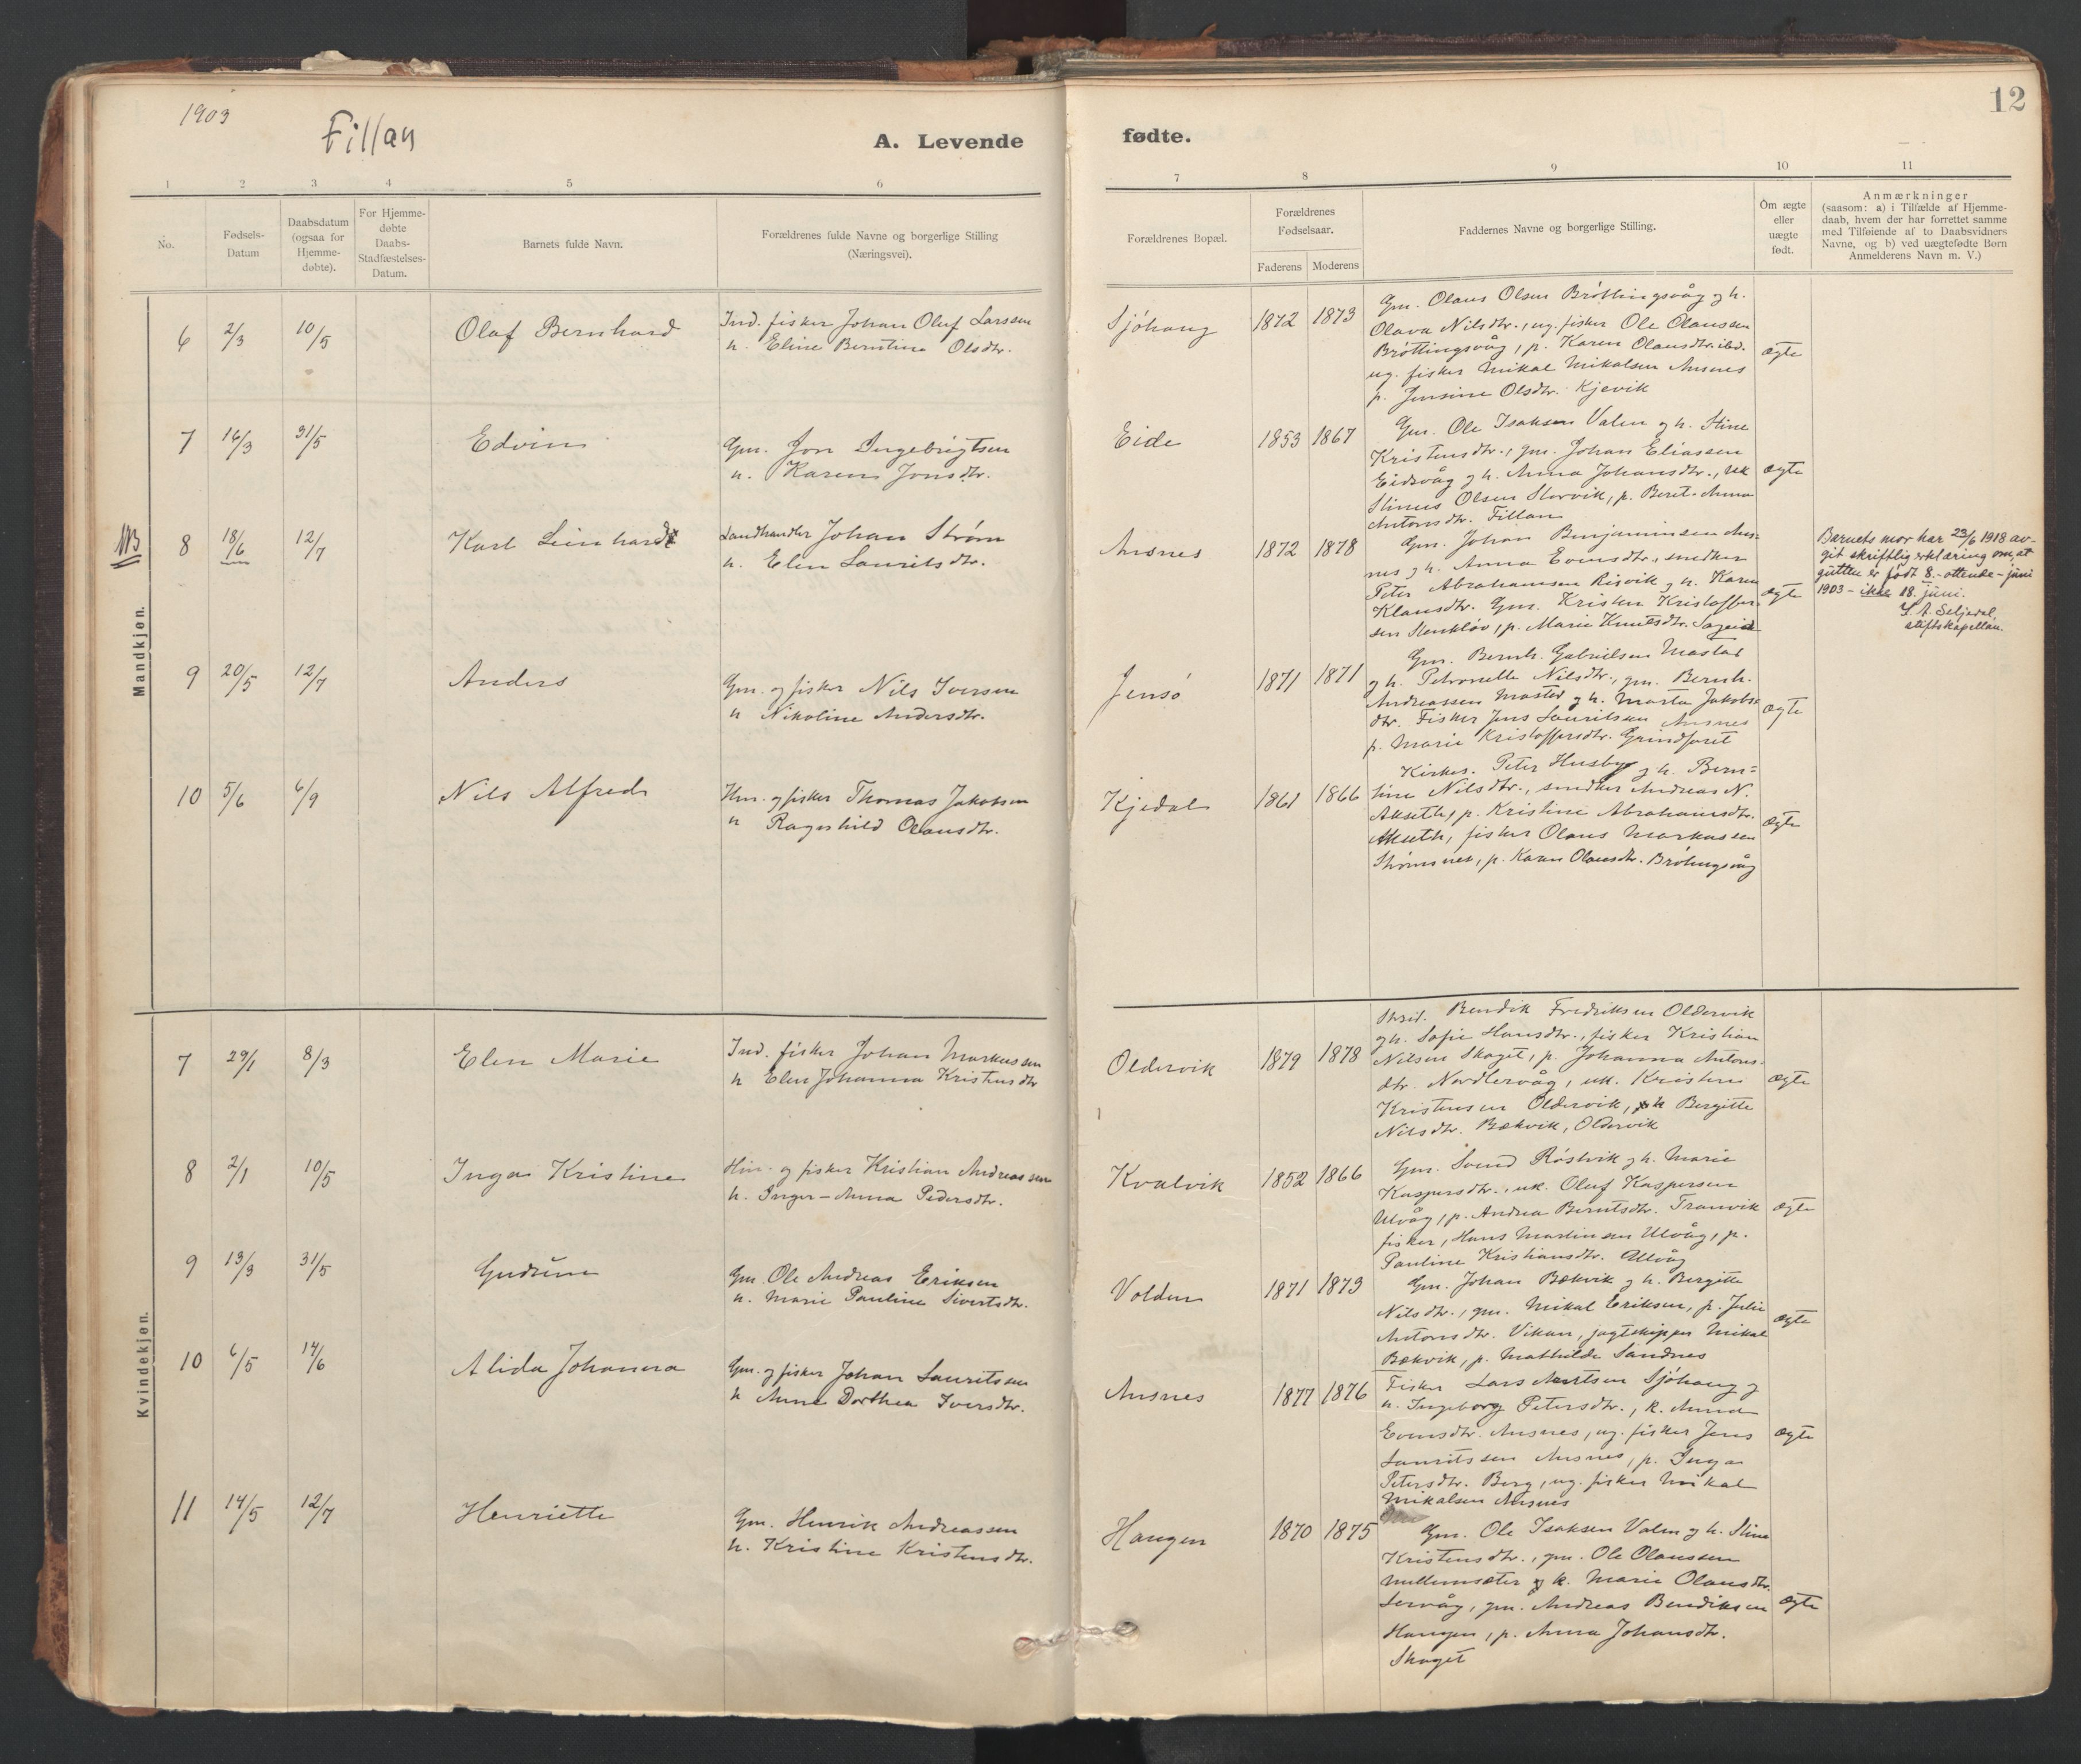 1903
Fillan
A. Levende
fødte.
12
1
2
3
4
5
6
7
8
9
10
11
No.
Fødsels-
Datum
Daabsdatum
(ogsaa for
Hjemme-
døbte).
For Hjemme-
døbte
Daabs-
Stadfæstelses-
Datum.
Barnets fulde Navn.
Forældrenes fulde Navne og borgerlige Stilling
(Næringsvei).
Forældrenes Bopæl.
Forældrenes
Fødselsaar.
Faderens
Moderens
Faddernes Navne og borgerlige Stilling.
Om ægte
eller
uægte
født.
Anmærkninger
(saasom: a) i Tilfælde af Hjemme-
daab, hvem der har forrettet samme
med Tilføiende af to Daabsvidners
Navne, og b) ved uægtefødte Børn
Anmelderens Navn m. V.)
Mandkjøn.
6 2/3 10/5 Olaf Bernhard
Ind. fisker Johan Oluf Larssen
h. Eline Berntine Olsdtr.
Sjöhaug 1872 1873
Gm. Olaus Olsen Bröttingsvåg og h.
Olava Nilsdtr., ug. fisker Ole Olaussen
Bröttingsvåg, p. Karen Olausdtr. ibd.
ug. fisker Mikal Mikalsen Ansnes
p. Jensine Olsdtr. Kjevik
ægte
7 16/3 31/5 Edvin
Gm. Jon Ingebrigtsen
h. Karen Jonsdtr.
Eide 1853 1867
Gm. Ole Isaksen Valen og h. Stine
Kristensdtr., gm. Johan Eliassen
Eidsvåg og h. Anna Johansdtr., uk
Stinus Olsen Storvik, p. Berit-Anna
Antonsdtr. Fillan
ægte
NB 8 18/6 12/7 Karl Leinhardt
Landhandler Johan Strøm
h. Elen Lauritsdtr.
Ansnes 1872 1878
Gm. Johan Benjaminsen Ans-
nes og h. Anna Evensdtr., snedker
Peter Abrahamsen Risvik og h. Karen
Klausdtr. Gm. Kristen Kristoffer-
sen Stenkløv, p. Marie Knutsdtr.
ægte
Barnets mor har 23/6 1918 av-
git skriftlig erklæring om, at
gutten er født 8.-ottende-juni
1903 - ikke 18. juni.
L. A. Seljedal,
stiftskapellan.
9 20/5 12/7 Anders
Gm. og fisker Nils Iversen
h Nikoline Andersdtr.
Jensö 1871 1871
Gm. Bernh. Gabrielsen Mastad
og h. Petronelle Nilsdtr., gm. Bernh.
Andreassen Mastad og h. Marta Jakobs-
dtr. Fisker Jens Lauritsen Ansnes
p. Marie Kristoffersdtr.
ægte
10 5/6 6/9 Nils Alfred
Hm. og fisker Thomas Jakobsen
h Ragnhild Olausdtr.
Kjedal 1861 1866
Kirkes. Peter Husby og h. Bern-
tine Nilsdtr., snedker Andreas N.
Akseth, p. Kristine Abrahamsdtr.
Akseth, fisker Olaus Markussen
Strømsnes, p. Karen Olausdtr. Brötingsvåg
ægte
Kvindekjøn.
7 29/1 8/3 Elen Marie
Ind. fisker Johan Markussen
h Elen Johanna Kristensdtr
Oldervik 1879 1878
Bendik Fredriksen Oldervik
og h. Sofie Hansdtr., fisker Kristian
Nilsen Skaget, p. Johanna Antons-
dtr. Nordlervåg, uk. Kristen
Kristensen Oldervik, Bergitte
Nilsdtr. Bækvik, Oldervik
ægte
8 2/1 10/5 Inga Kristine
Hm. og fisker Kristian Andreassen
h. Inger-Anna Pedersdtr.
Kvalvik 1852 1866
Gm. Svend Röstvik og h. Marie
Kaspersdtr., uk. Oluf Kaspersen
Ulvåg, p. Andrea Berntsdtr. Tranvik
fisker, Hans Martinsen Ulvåg, p.
Pauline Kristiansdtr. Ulvåg
ægte
9 13/3 31/5 Gudrun
Gm. Ole Andreas Eriksen
h. Marie Pauline Sivertsdtr.
Volden 1871 1873
Gm. Johan Bækvik og h. Bergitte
Nilsdtr., gm. Mikal Eriksen, p. Julie
Antonsdtr. Vikan, jagtskipper Mikal
Bækvik, p. Mathilde Sandnes
ægte
10 6/5 14/6 Alida Johanna
Gm. og fisker Johan Lauritsen
h Anne Dorthea Iversdtr.
Ansnes 1877 1876
Fisker Lars Sjöhaug og
h. Ingeborg Petersdtr., k. Anna
Evensdtr. Ansnes, ug. fisker Jens
Lauritssen Ansnes, p. Inga
Petersdtr. Berg, ug. fisker Mikal
Mikalsen Ansnes
ægte
11 14/5 12/7 Henriette
Gm. Henrik Andreassen
h. Kristine Kristensdtr.
Haugen 1870 1875
Gm. Ole Isaksen Valen og h. Stine
Kristensdtr., gm. Ole Olaussen
Mellemsæter og k. Marie Olausdtr.
Lervåg, gm. Andreas Bendiksen
Haugen, p. Anna Johansdtr.
Skaget
ægte